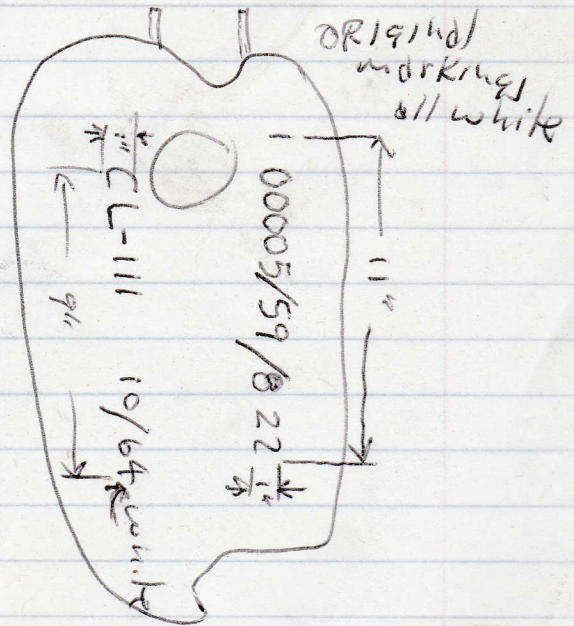 ORiginal
markings
all white
11"
00005/59/8 22
1"
1"
CL-111 10/64 white
9"